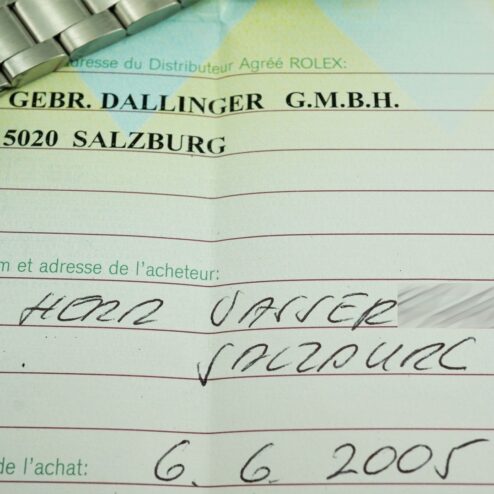 dresse du Distributeur Agréé ROLEX:
GEBR. DALLINGER G.M.B.H.
5020 SALZBURG
m et adresse de l'acheteur:
HERR VASSER
SALZBURG
de l'achat: 6. 6. 2005